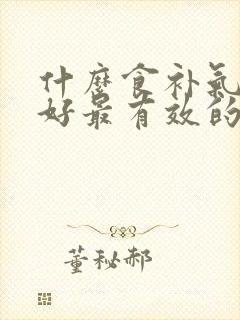 什麼食补氣
好最有效的
董秘郝